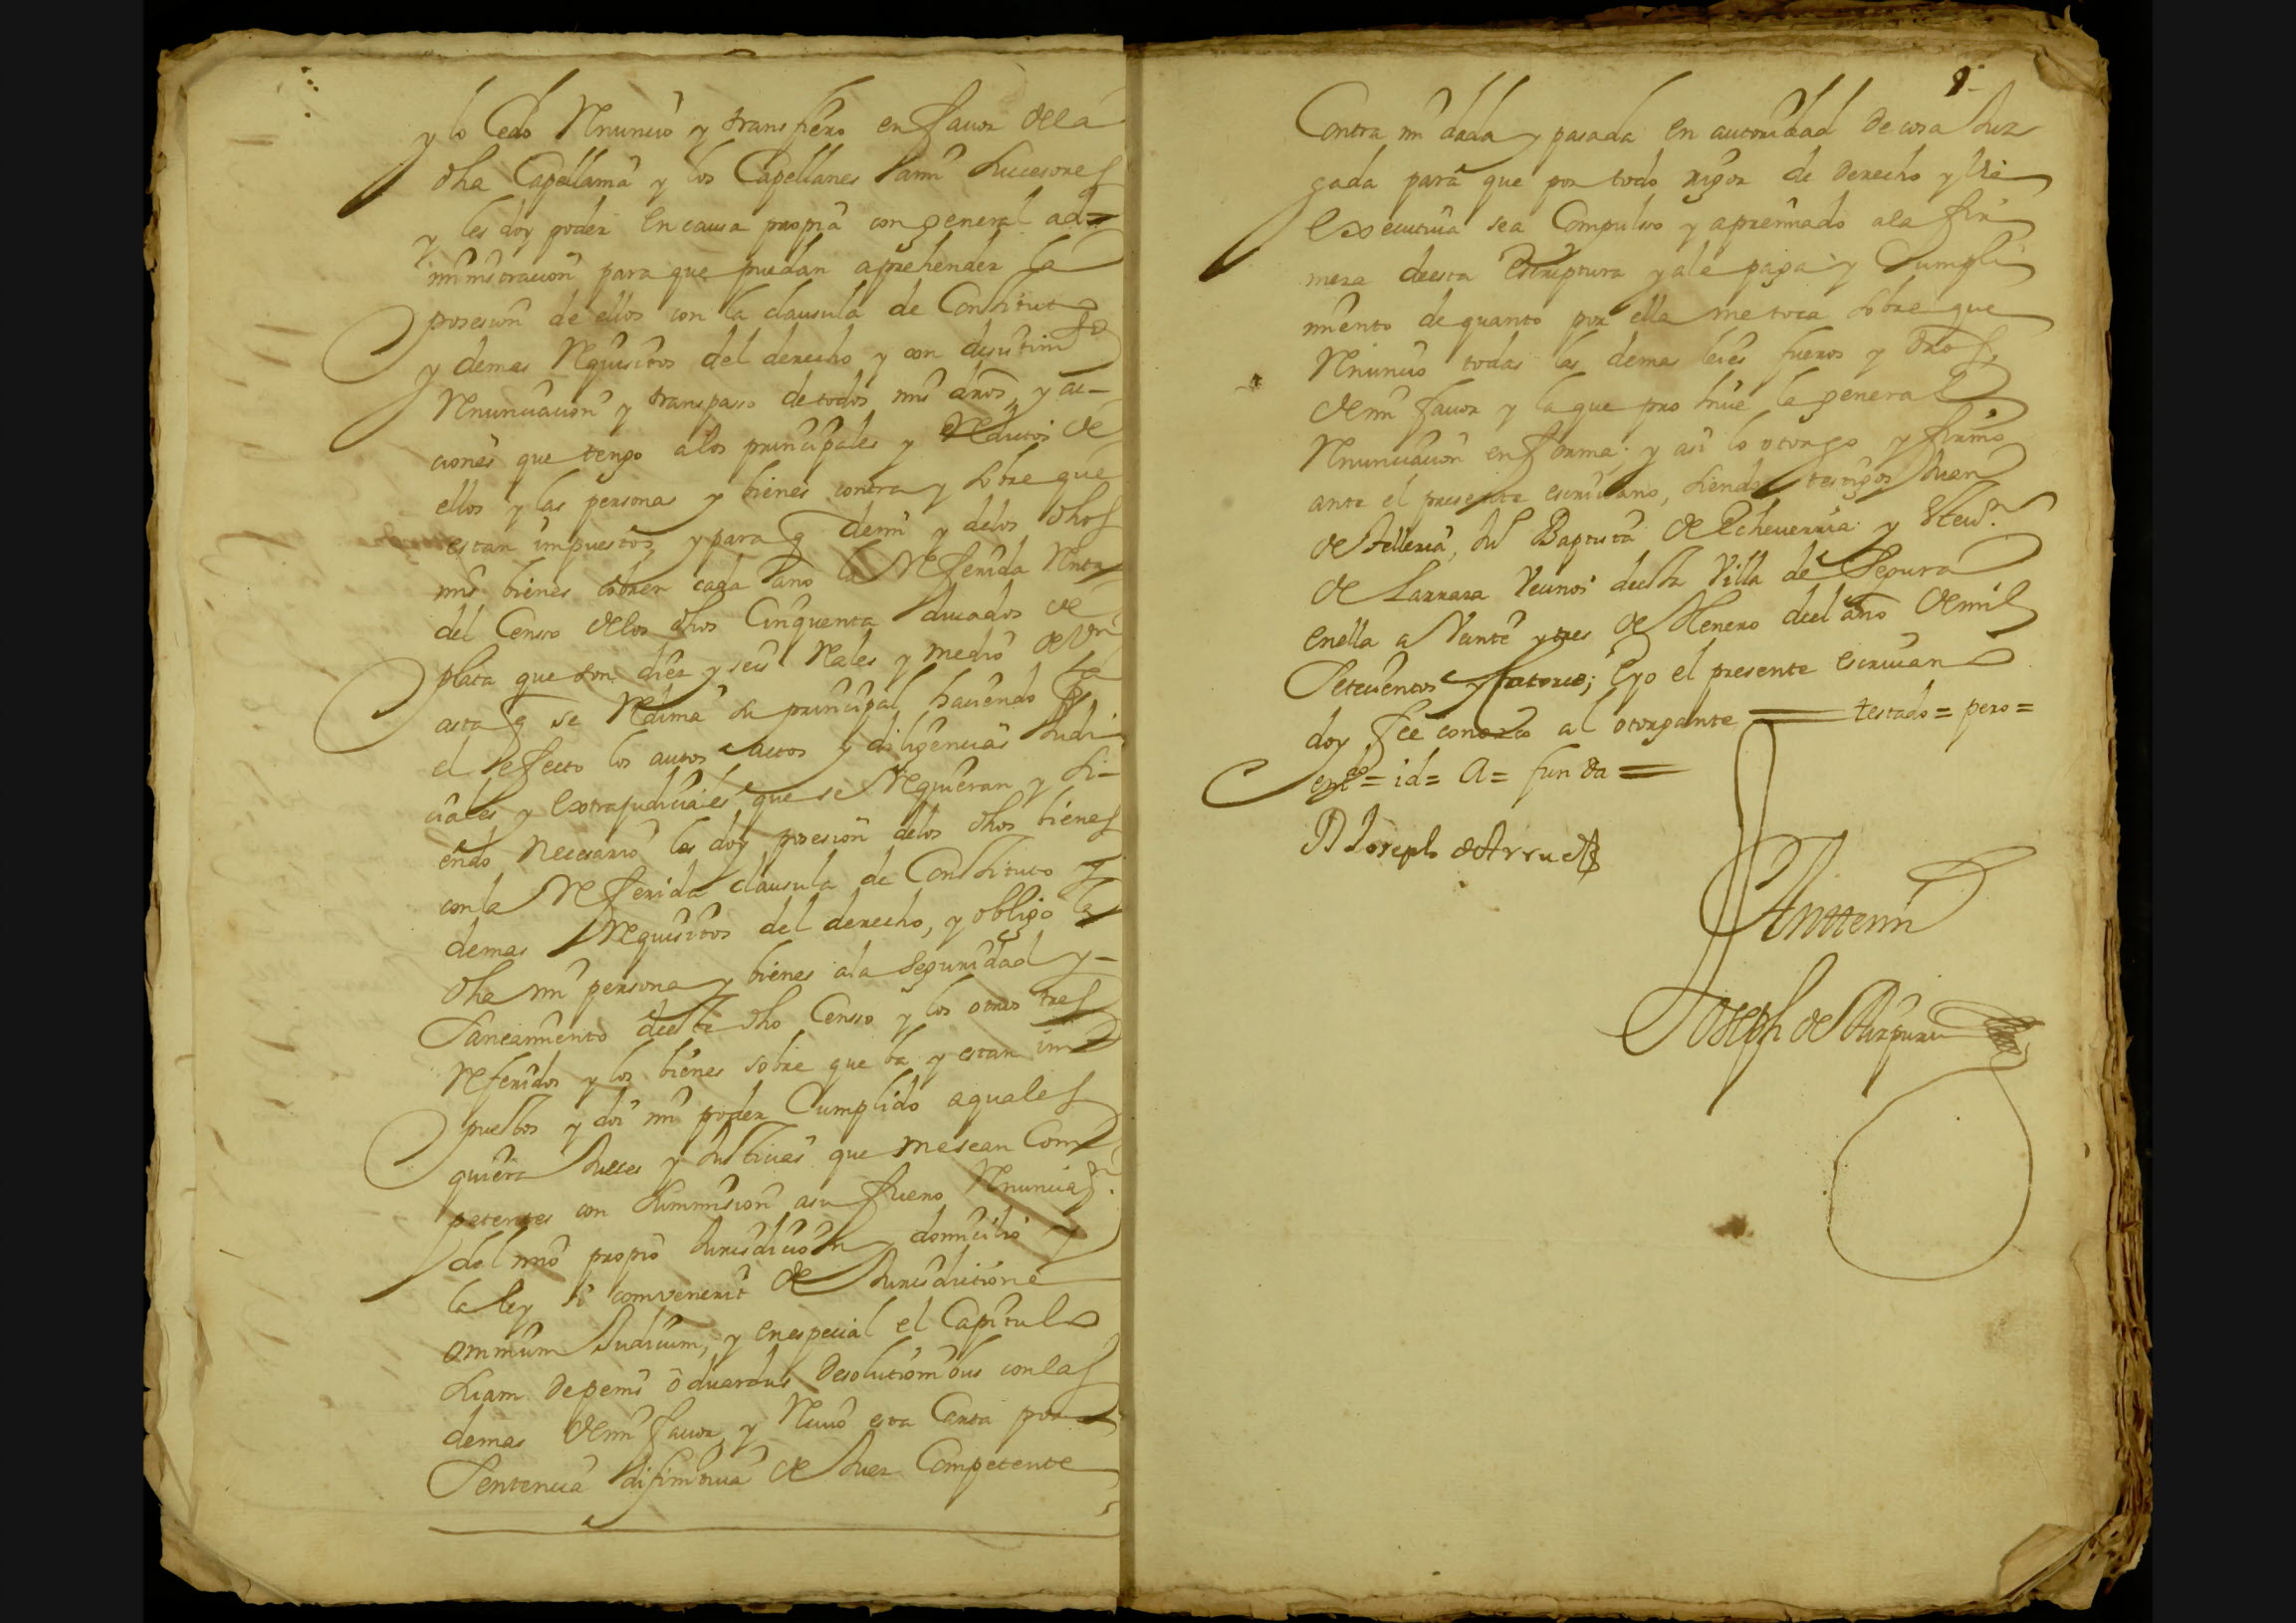 y lo Cedo Renuncio y transfiero en favor dela
dha Capellania y los Capellanes sami subcesores
y les doy poder en causa propia con general ad=
ministracion para que puedan aprehender la
posesion de ellos con la clausula de Constituto
y demas Requisitos del derecho y con desistim.to
Renunciacion y transpaso de todos mis dros, y ac-
ciones que tengo a los principales y Reditos de
ellos y las personas y bienes contra y sobre que
estan impuestos y para q demi y delos dhos
mis bienes cobren cada año la Referida Renta
del Censo delos dhos Cinquenta ducados de
plata que son diez y seis Reales y medio de Vn
asta q se Redima su principal haciendo pa
el efecto los autos y diligencias Judi
ciales y extrajudiciales que se Requieran y si-
endo necesario les doy posesion delos dhos bienes
con la Referida clausula de Constituto y
demas Requisitos del derecho, y obligo la
dha mi persona y bienes ala seguridad y-
Saneamiento deeste dho Censo y los otros tres
Referidos y los bienes sobre que ba y estan im
puestos y doi mi poder Cumplido aquales
quiera Jueces y Justicias que me sean Com
petentes con summision asu fuero Renuncia.on
del mio propio Jurisdicion y domicilio y
la ley si combenerit de Jurisdictione
omnium Judicum, y en especial el Capitulo
suam depenis oduardus desolutionibus con las
demas demi favor, y Recivo esta Carta por
Sentencia difinitiva de Juez Competente
Contra mi dada y pasada en autoridad de cosa Juz
gada para que por todo rigor de derecho y via
executiva sea Compulso y apremiado ala fir
meza deesta Escriptura y ale paga y Cumpli
miento de quanto por ella me toca sobre que
Renuncio todas las demas leies fueros y dros
demi favor y la que prohive la general
Renunciacion en forma; y asi lo otorgo y firmo
ante el presente escrivano, siendo testigos Juan
de Telleria, Ju Baptista de Echeverria y Stev.n
de Larraza Vecinos deesta Villa de Segura
enella a Veinte y tres de Henero deel año de mil
Setecientos y catorce; e yo el presente escrivano
doy fee conozco al otorgante = testado = pero =
en.do = id = a = funda =
D Joseph de Arrue
Antemi
Joseph de Aizpuru